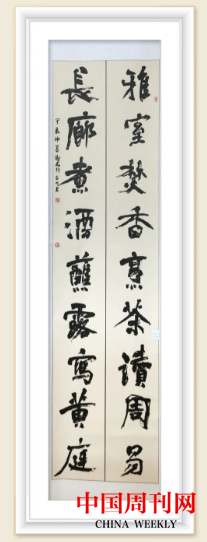 雅室焚香烹茶讀周易
長廊煮酒蘸露寫黃庭
中国周刊网
CHINA WEEKLY